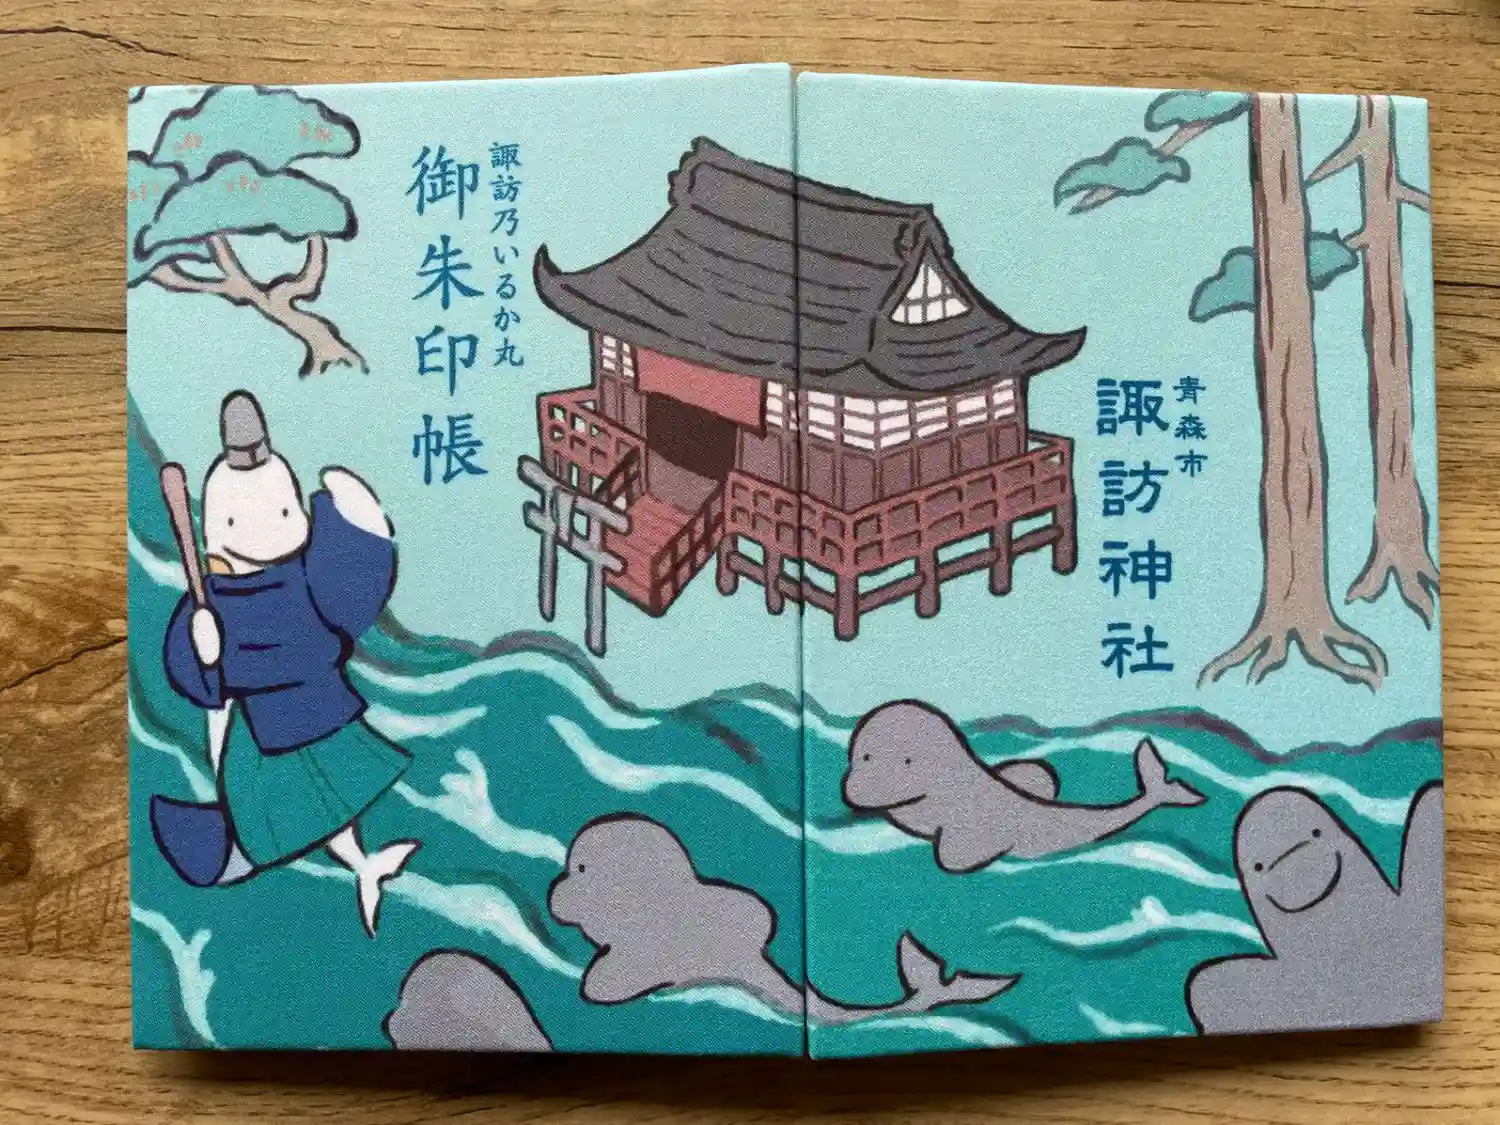 青森市
諏訪神社
諏訪乃いるか丸
御朱印帳